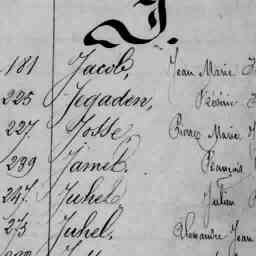 J.
181 Jacob, Jean Marie
225 Jegaden,
227. Josse Pierre Marie
239 Jamet. François
247. Juhel Julien
273 Juhel, Alexandre Jean